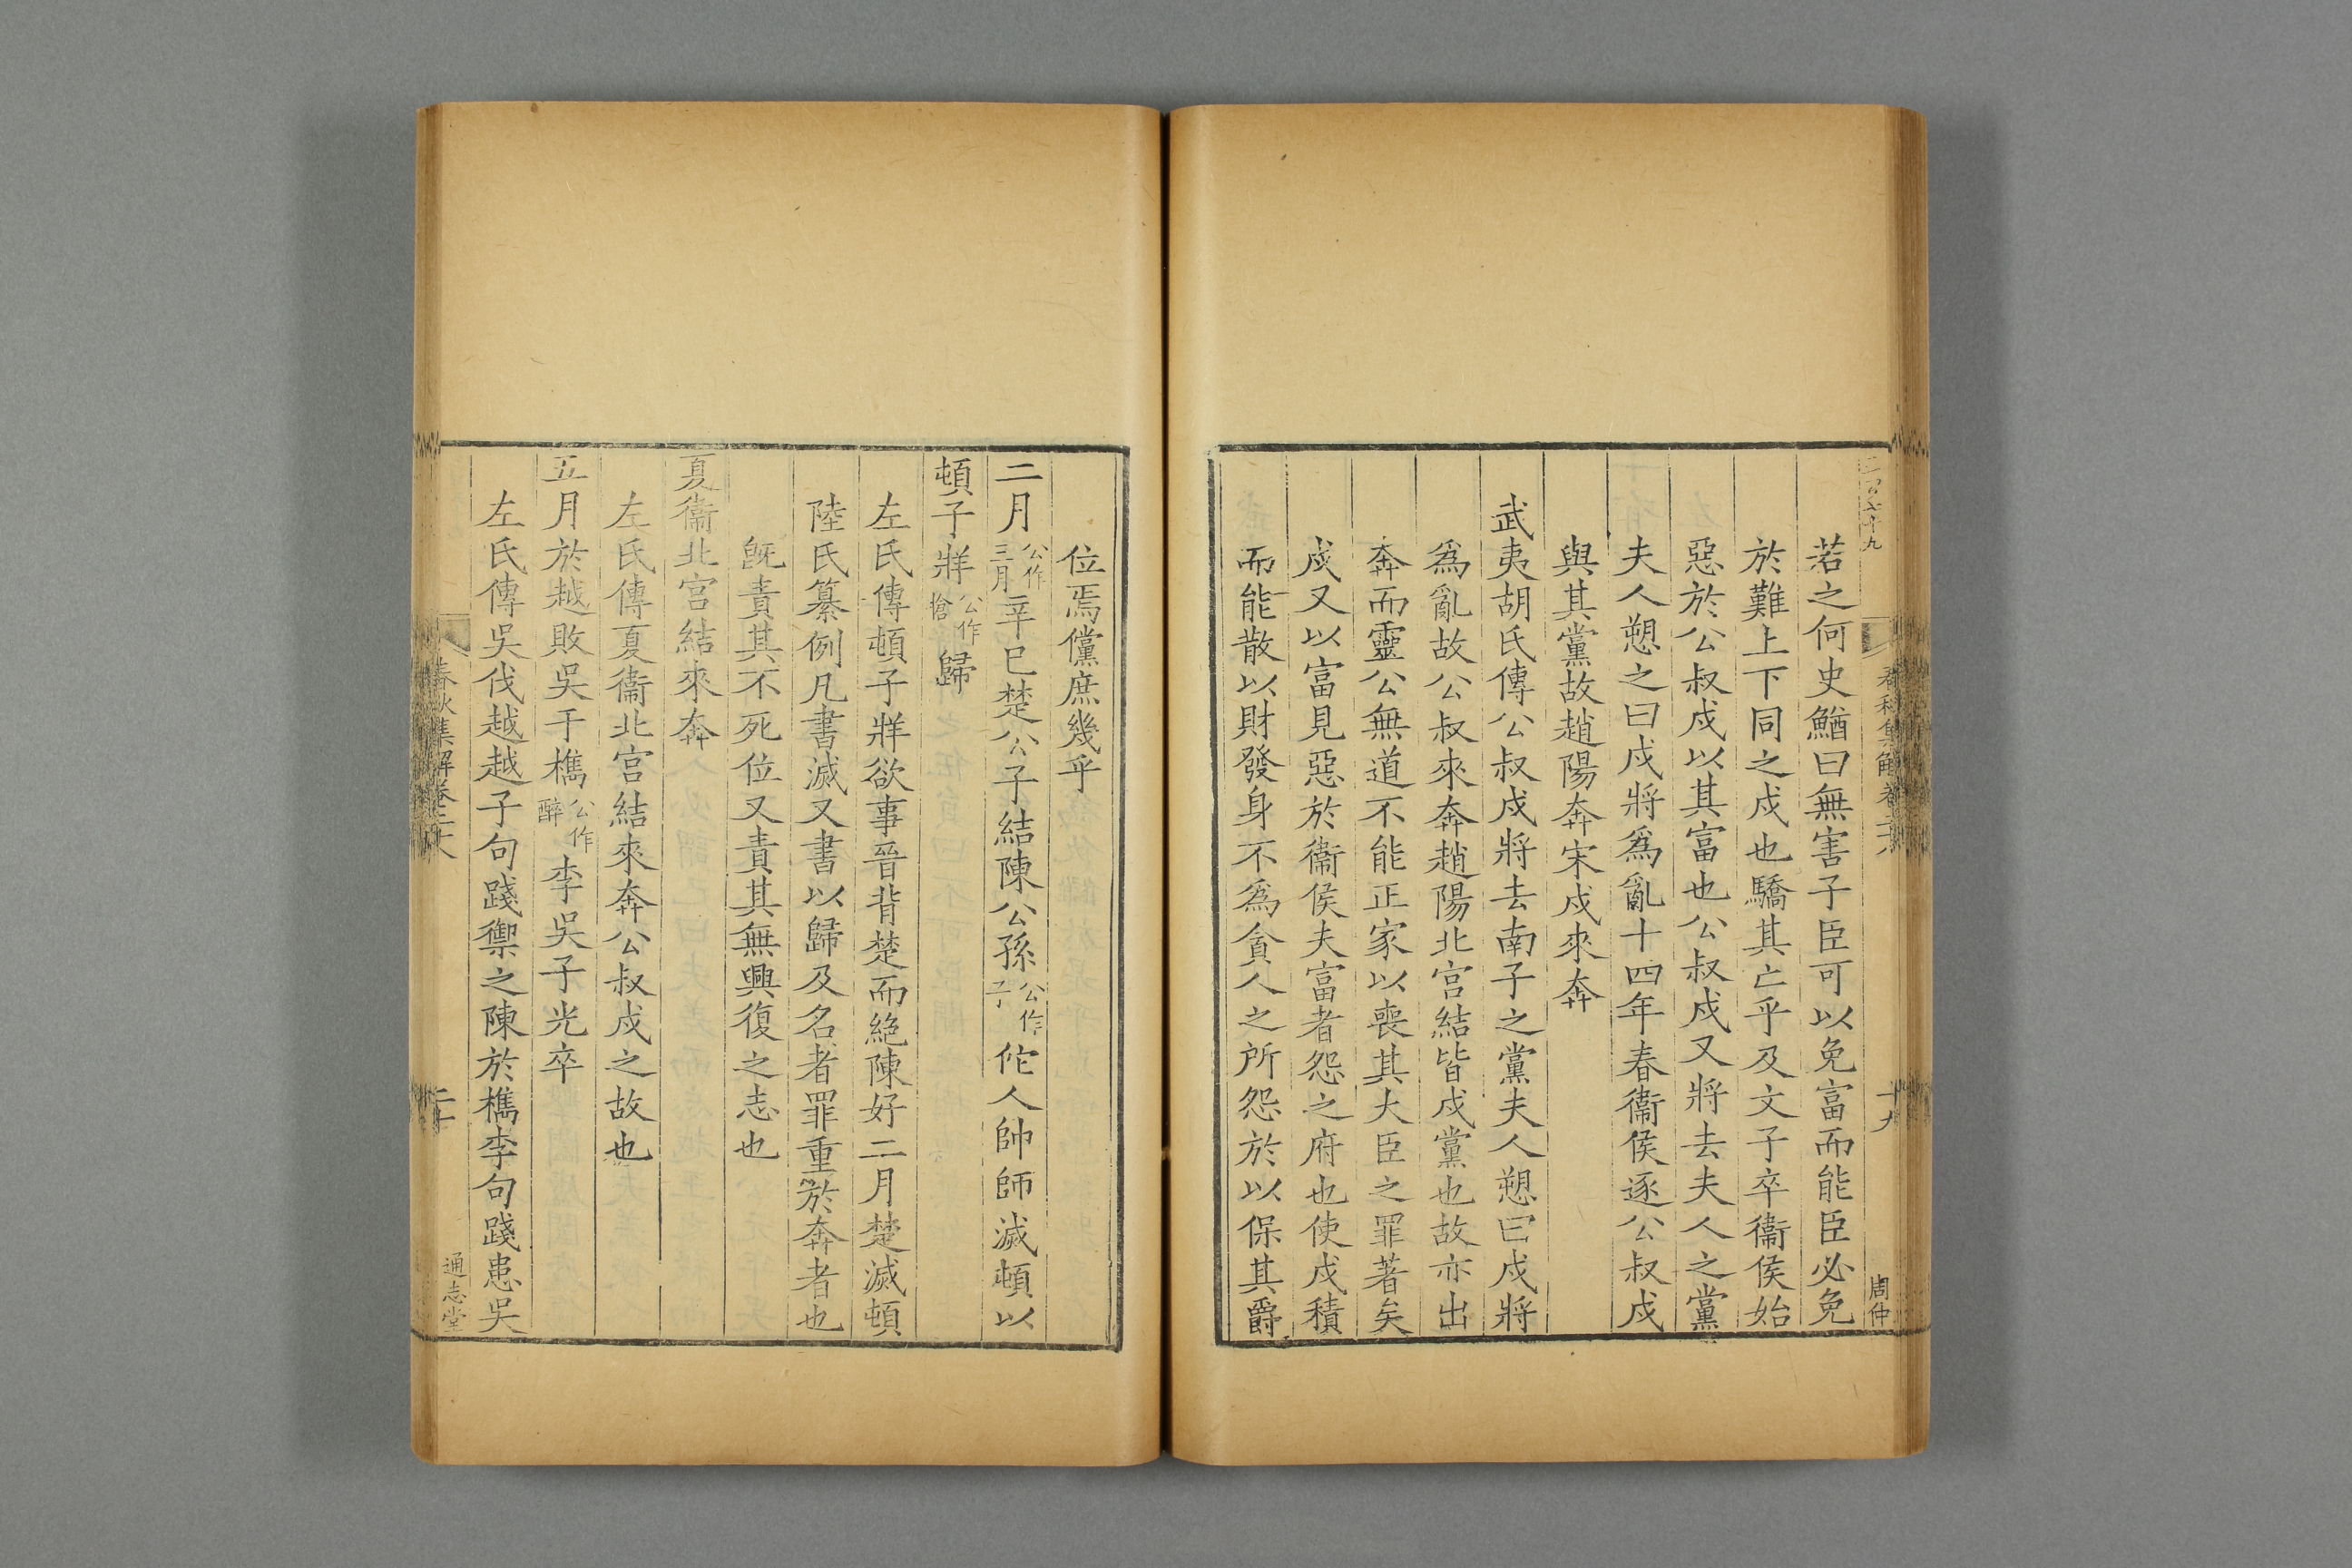 若之何史鰌曰無害子臣可以免富而能臣必免
於難上下同之戍也驕其亡乎及文子卒衞侯始
惡於公叔戍以其富也公叔戍又將去夫人之黨
夫人愬之曰戍將爲亂十四年春衞侯逐公叔戍
與其黨故趙陽奔宋戍來奔
武夷胡氏傳公叔戍將去南子之黨夫人愬曰戍將
爲亂故公叔來奔趙陽北宮結皆戍黨也故亦出
奔而靈公無道不能正家以喪其大臣之罪著矣
戍又以富見惡於衞侯夫富者怨之府也使戍積
而能散以財發身不爲貪人之所怨於以保其爵
十九
周仲
位焉儻庶幾乎
二月公作三月辛巳楚公子結陳公孫公作子佗人帥師滅頓以
頓子牂公作槍歸
左氏傳頓子牂欲事晉背楚而絶陳好二月楚滅頓
陸氏纂例凡書滅又書以歸及名者罪重於奔者也
旣責其不死位又責其無興復之志也
夏衞北宮結來奔
左氏傳夏衞北宮結來奔公叔戍之故也
五月於越敗吳于檇公作醉李吳子光卒
左氏傳吳伐越越子句踐禦之陳於檇李句踐患吳
春秋集解卷二十八
通志堂